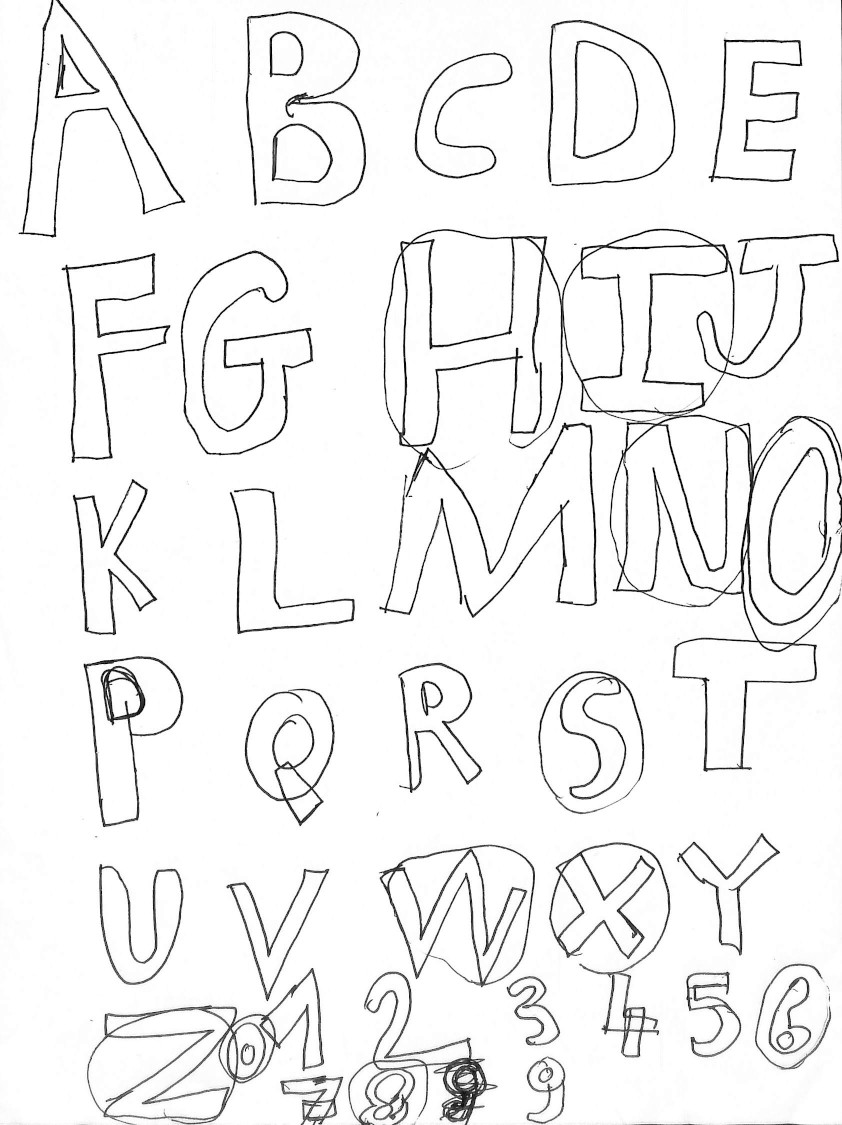 A B C D E
F G H I J
K L M N O
P Q R S T
U V W X Y
Z 0 1 2 3 4 5 6
7 8 9